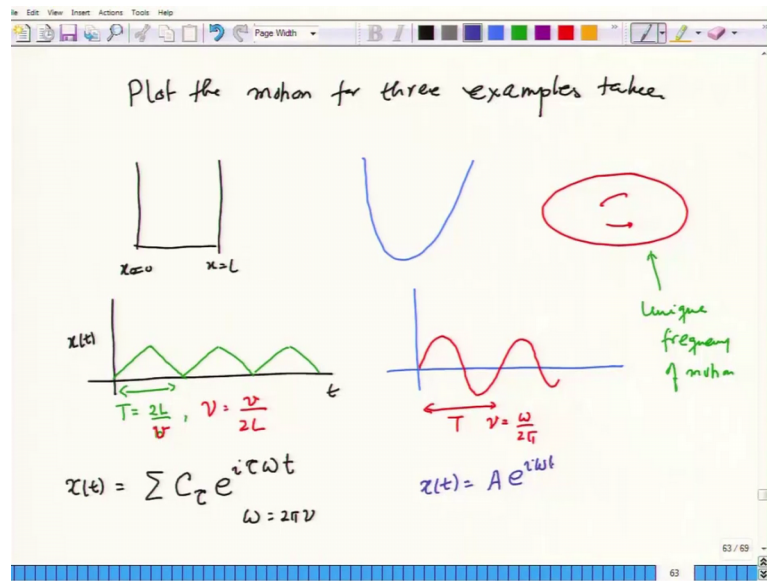 le Edit View Insert Actions Tools Help
Page Width
B I
Plot the motion for three examples taken
x=0 x=L
x(t)
t
T = 2L/v, ν = v/2L
x(t) = Σ C_τ e^{iτωt}
ω = 2πν
T ν = ω/2π
x(t) = A e^{iωt}
Unique
frequency
of motion
63 / 69
63